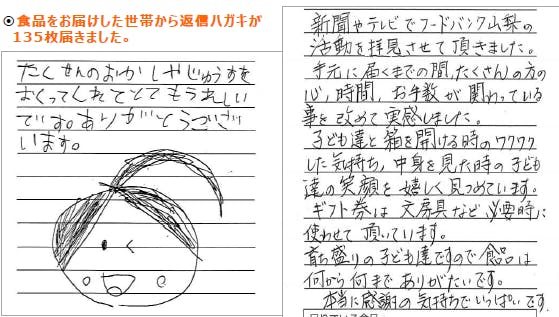 食品をお届けした世帯から返信ハガキが
135枚届きました。
たくさんのおかしやじゅうすを
おくってくれてとてもうれしい
です。ありがとうござい
います。
新聞やテレビでフードバンク山梨の
活動を拝見させて頂きました。
手元に届くまでの間、たくさんの方の
心、時間、お手数が関わっている
事を改めて実感しました。
子ども達と箱を開ける時のワクワク
した気持ち、中身を見た時の子ども
達の笑顔を嬉しく見つめています。
ギフト券は文房具など必要時に
使わせて頂いています。
育ち盛りの子ども達ですので食品は
何から何までありがたいです。
本当に感謝の気持ちでいっぱいです。